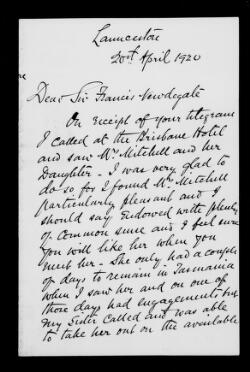 Launceston
20th April 1920
Dear Sir Francis Newdegate
On receipt of your telegram
I called at the Brisbane Hotel
and saw Mrs Mitchell and her
Daughter - I was very glad to
do so for I found Mrs Mitchell
particularly pleasant and I
should say Endowed with plenty
of Common sense and I feel sure
you will like her when you
meet her - She only had a couple
of days to remain in Tasmania
when I saw her and on one of
those days had engagements but
my Sister Called and was able
to take her out on the available